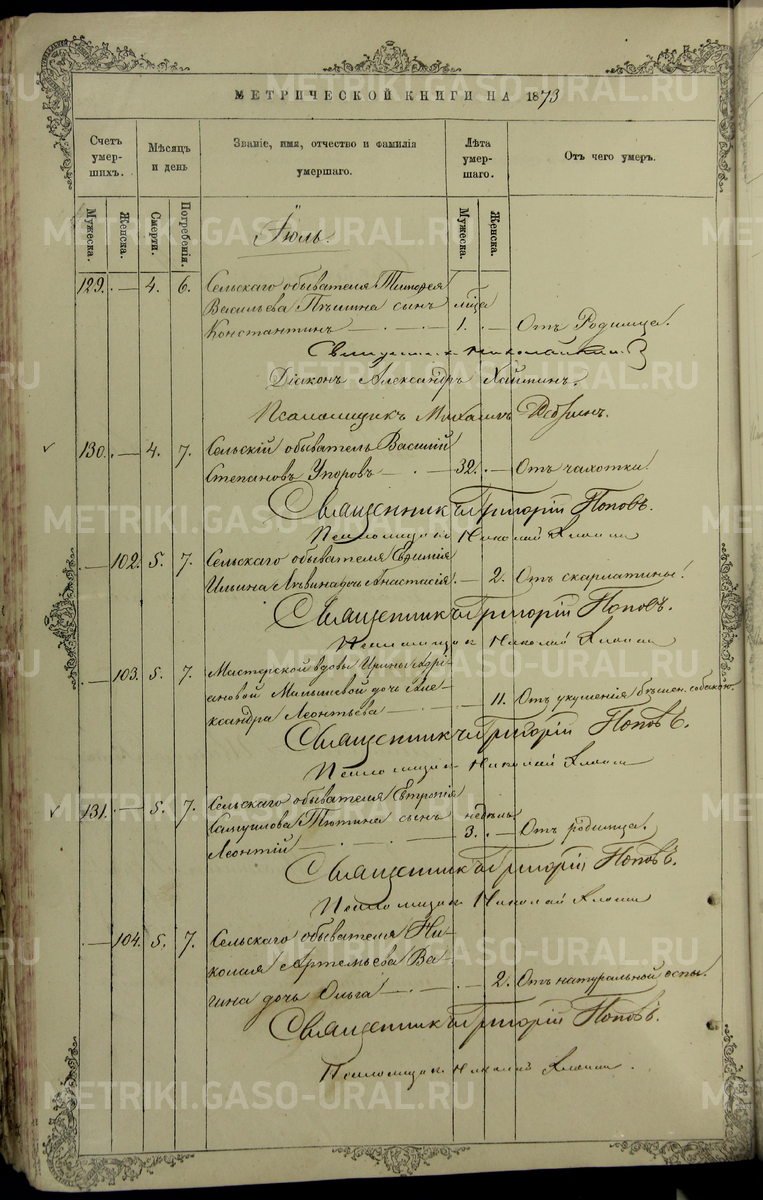 МЕТРИЧЕСКОЙ КНИГИ НА 1873
Счетъ умер-шихъ.
Мѣсяцъ и день
Званіе, имя, отчество и фамилія умершаго.
Лѣта умер-шаго.
Отъ чего умеръ.
Мужеска.
Женска.
Смерти.
Погребенія.
Мужеска.
Женска.
Іюль.
129. — 4. 6. Сельскаго обывателя Тимофея
Васильева сынъ
Константинъ — 1. — Отъ Родимца.
Священникъ
Діаконъ Александръ
Псаломщикъ Михаилъ
130. — 4. 7. Сельскій обыватель Василій
Степановъ Упоровъ — 32. — Отъ чахотки.
Священникъ Григорій Поповъ.
Псаломщикъ Николай
— 102. 5. 7. Сельскаго обывателя Евфимія
дочь Анастасія. — 2. Отъ скарлатины.
Священникъ Григорій Поповъ.
Псаломщикъ Николай
— 103. 5. 7. Мастерской вдовы Ирины Андрі-
ановой Малышевой дочь Але-
ксандра Леонтьева — 11. Отъ укушенія бѣшен. собакою.
Священникъ Григорій Поповъ.
Псаломщикъ Николай
131. — 5. 7. Сельскаго обывателя Евтропія
Самуилова Тютина сынъ недѣль
Леонтій — 3. — Отъ родимца.
Священникъ Григорій Поповъ.
Псаломщикъ Николай
— 104. 5. 7. Сельскаго обывателя Ни-
колая Артемьева Ва-
гина дочь Ольга — 2. Отъ натуральной оспы.
Священникъ Григорій Поповъ.
Псаломщикъ Николай
METRIKI.GASO-URAL.RU